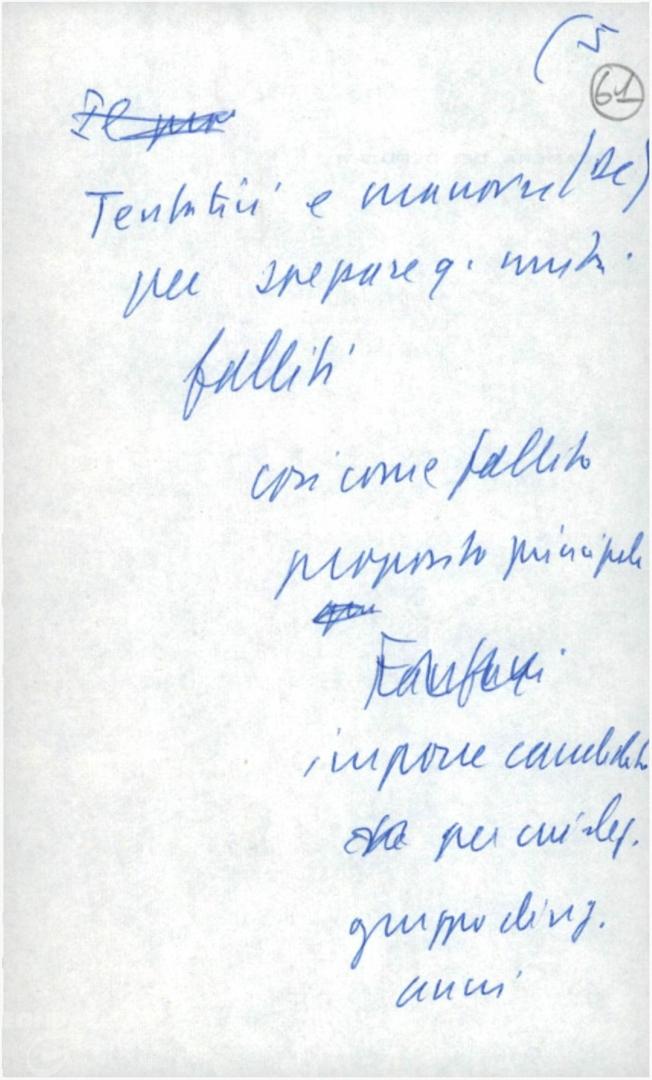 (5
61
Il pro
Tentativi e manovre (DC)
per separare q. sinistr.
falliti
così come fallito
proposito principale
Fanfani
imporre candidato
per cui
gruppo dirig.
anni